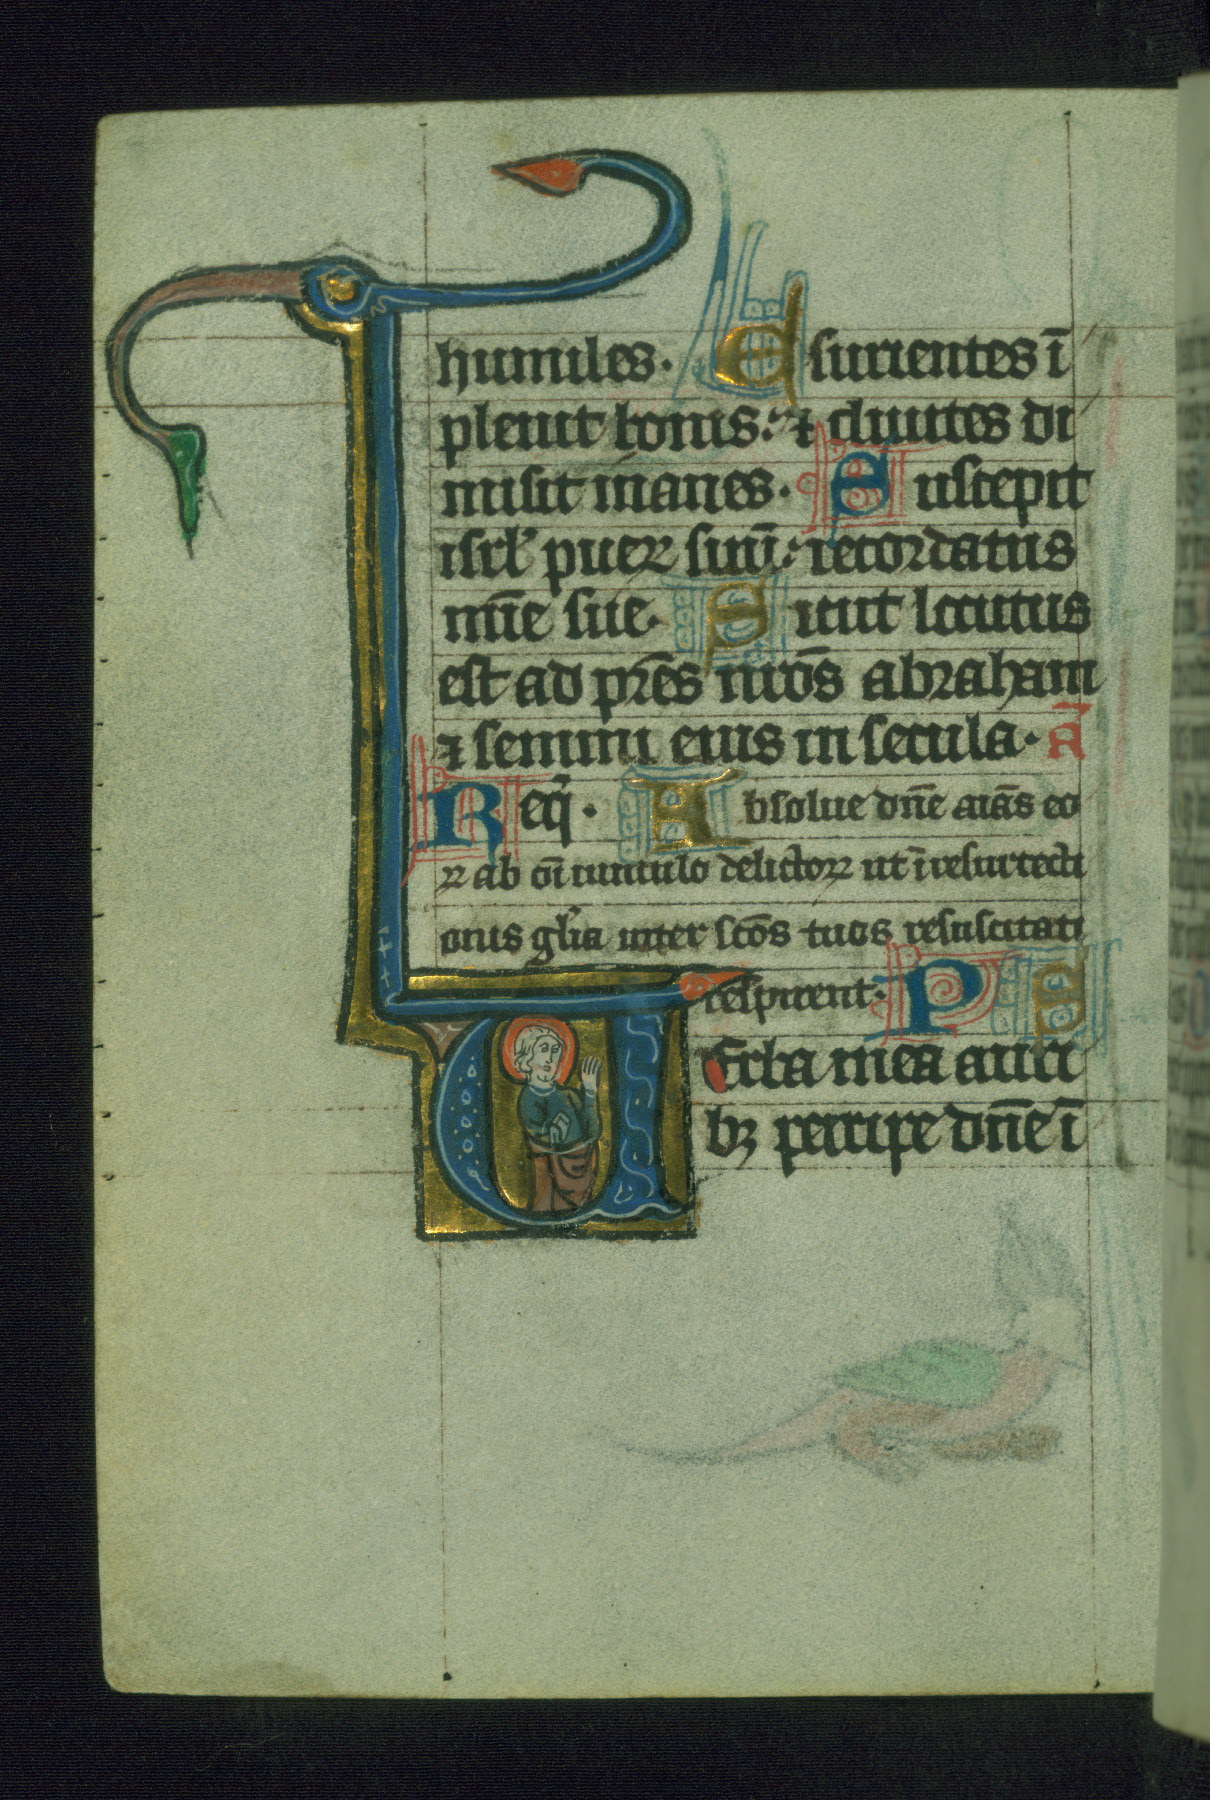 humiles. Esurientes ī
pleuit bonis: ⁊ diuites di
misit inanes. Suscepit
isrl' puerꝛ suū: recordatus
mīe sue. Sicut locutus
est ad p̄res nr̄os abraham
⁊ semini eius in secula. ā
Req̄. Absolue dn̄e aīas eo
ꝝ ab oī uinculo delictoꝝ ut ī resurrecti
onis gl'ia inter sc̄os tuos resuscitati
respirent. Ps
Uerba mea auri
bꝫ percipe dn̄e ī